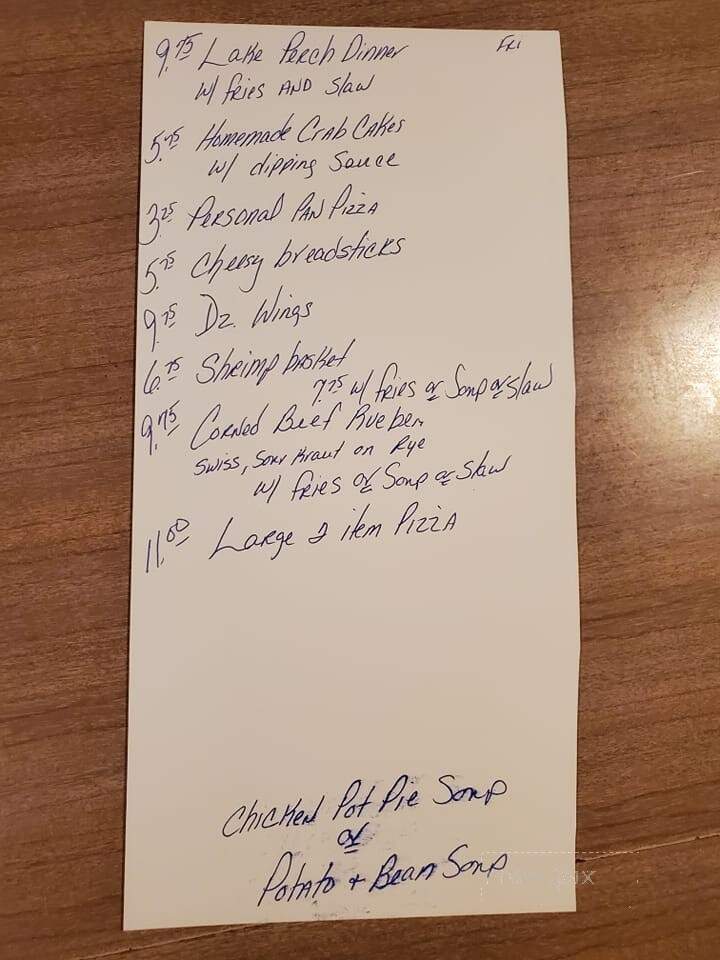 9.75 Lake Perch Dinner FRI
w/ fries AND Slaw
5.75 Homemade Crab Cakes
w/ dipping Sauce
3.25 Personal Pan Pizza
5.75 Cheesy breadsticks
9.75 Dz. Wings
6.75 Shrimp basket
7.75 w/ fries or Soup or slaw
9.75 Corned Beef Rueben
Swiss, Sour Kraut on Rye
w/ fries or Soup or Slaw
11.00 Large 2 item Pizza
Chicken Pot Pie Soup
or
Potato + Bean Soup